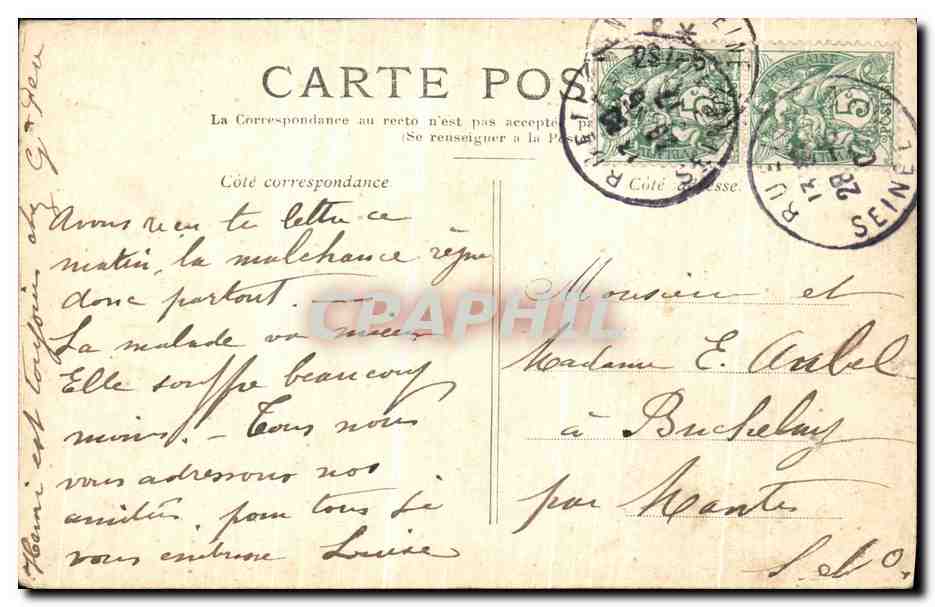 CARTE POS
La Correspondance au recto n'est pas acceptée pa
(Se renseigner a la Poste
Côté correspondance
Côté adresse.
Avons reçu ta lettre ce
matin, la malchance règne
donc partout. —
La malade va mieux
Elle souffre beaucoup
moins. — Tous nous
vous adressons nos
amitiés pour tous Je
vous embrasse Louise
Henri est toujours chez
Monsieur et
Madame E. Aubel
à Buchelay
par Mantes
S. et O.
CPAPHIL
RUE
SEINE
13
28
5c
POSTES